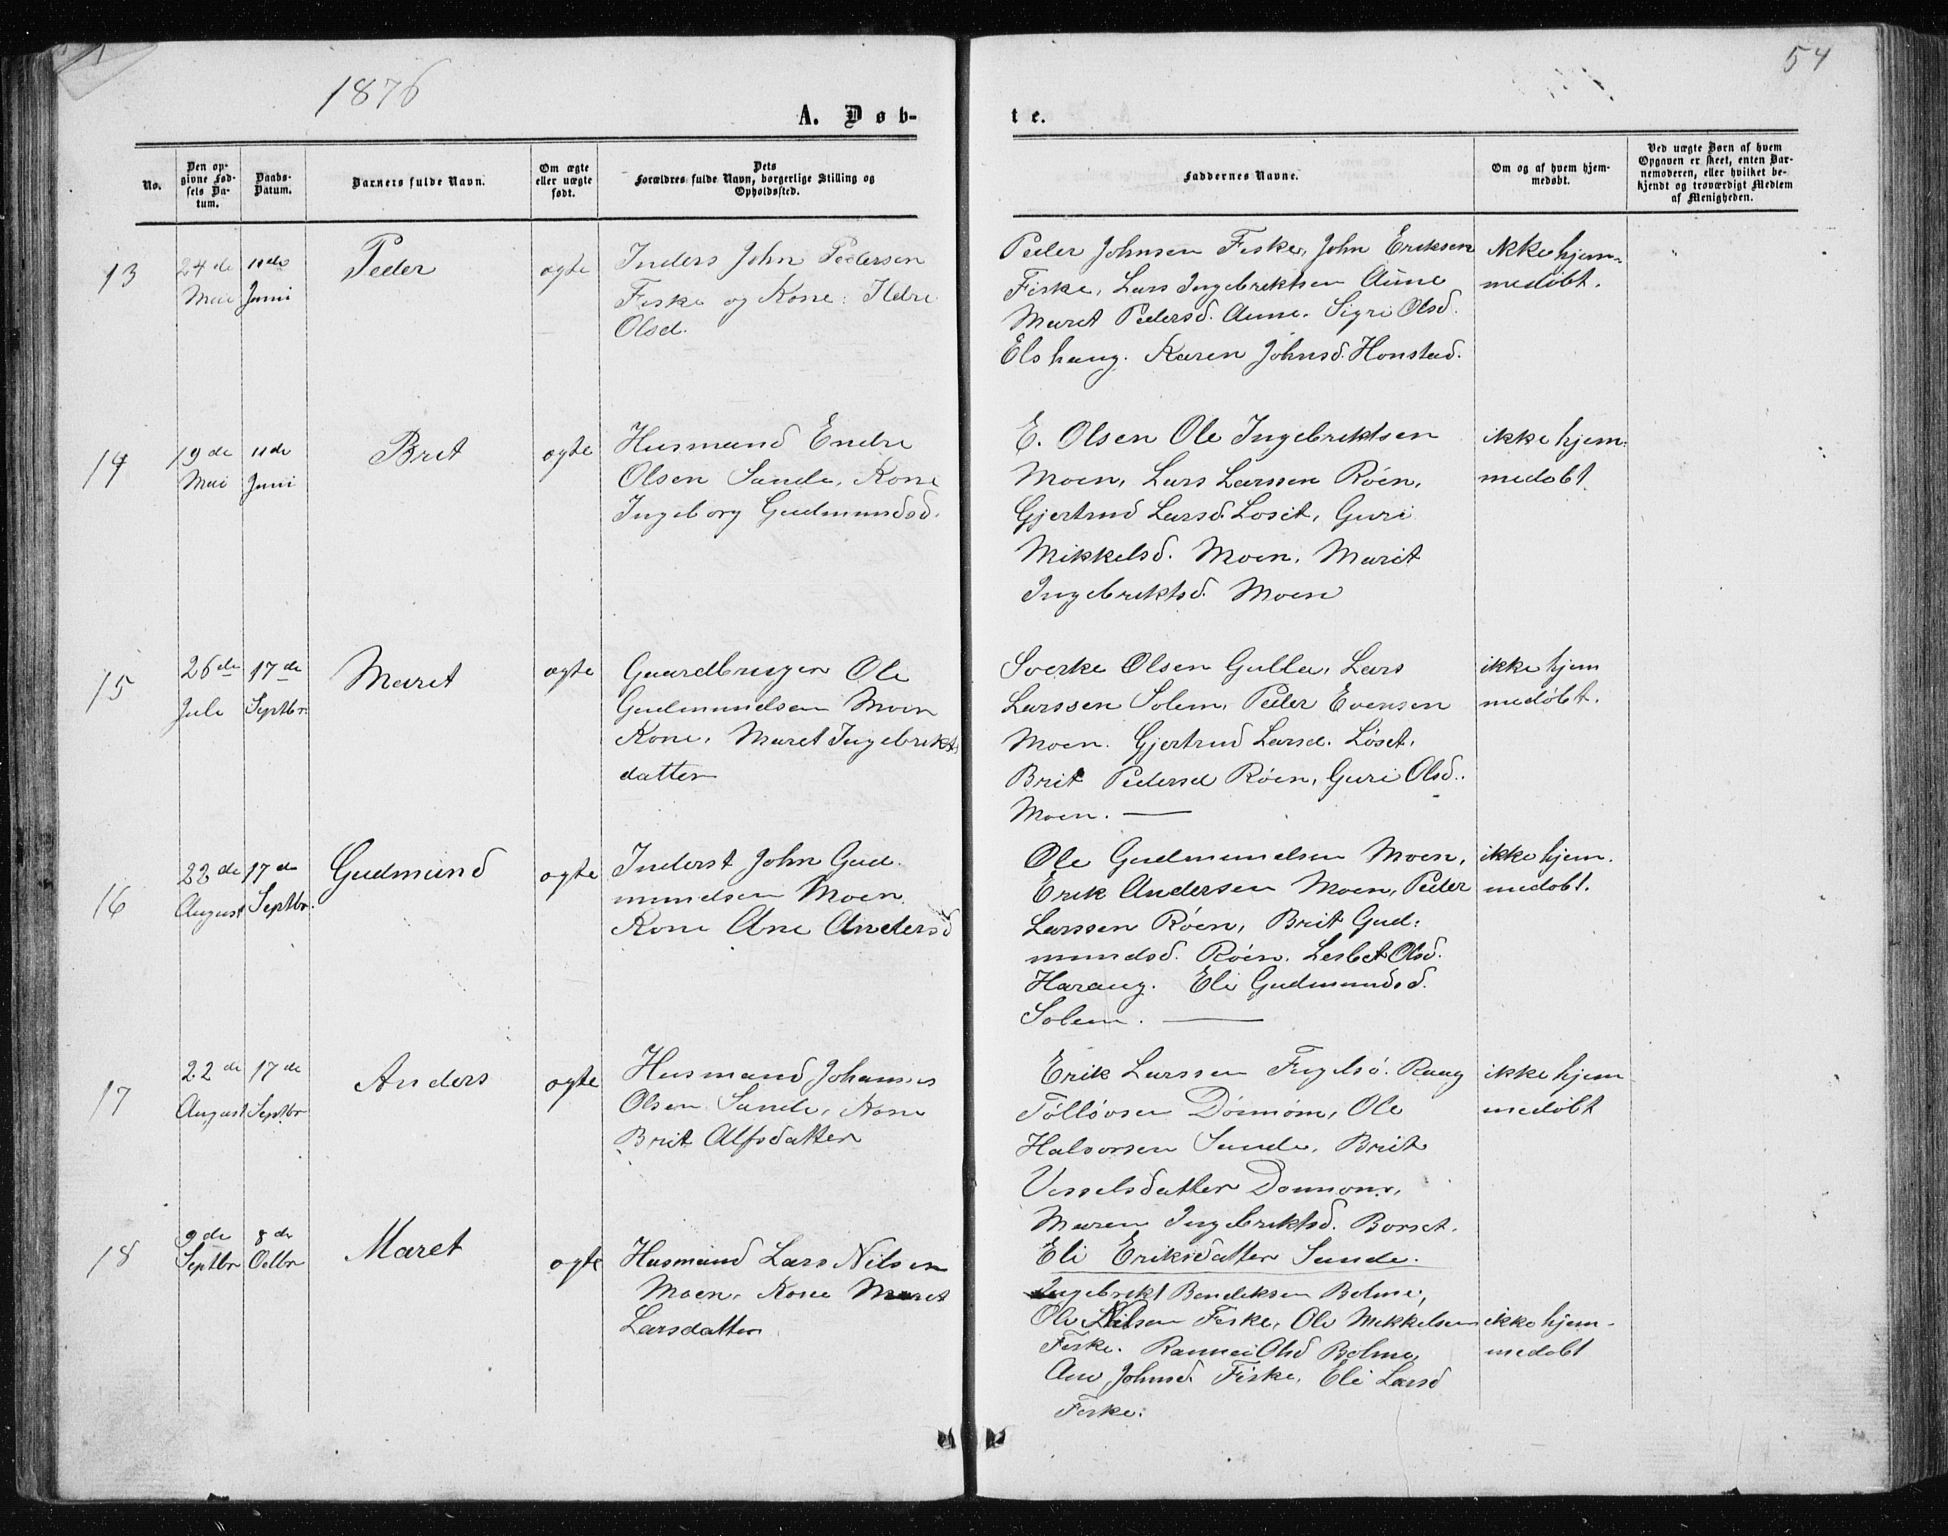 1876
54
A. Døb-
te.
No.
Den op-
givne Fød-
sels Da-
tum.
Daabs-
Datum.
Barnets fulde Navn.
Om ægte
eller uægte
født.
Dets
Forældres fulde Navn, borgerlige Stilling og
Opholdssted.
Faddernes Navne.
Om og af hvem hjem-
medøbt.
Ved uægte Børn af hvem
Opgaven er skeet, enten Bar-
nemoderen, eller hvilket be-
kjendt og troværdigt Medlem
af Menigheden.
13
24de
Mai
11de
Juni
Peder
ogte
Inders John Pedersen
Fiske og Kone: Ildri
Olsd.
Peder Johnsen Fiske, John Eriksen
Fiske, Lars Ingebrektsen Aune
Maret Pedersd. Aune. Sigri Olsd.
Elshaug. Karen Johnsd. Honstad.
ikke hjem-
medøbt.
14
19de
Mai
11de
Juni
Brit
ogte
Husmand Endre
Olsen Sande, Kone
Ingeborg Gudmundsd.
E. Olsen Ole Ingebriktsen
Moen, Lars Larssen Röen,
Gjertrud Larsd. Loset, Guri
Mikkelsd. Moen. Marit
Ingebriktsd. Moen
ikke hjem-
medøbt
15
26de
Juli
17de
Septbr.
Maret
ogte
Gaardbruger Ole
Gudmundsen Moen
Kone, Maret Ingebrikts
datter
Sverke Olsen Gulla, Lars
Larssen Solem, Peder Evensen
Moen. Gjertrud Larsd. Løset,
Brit Pedersd Röen, Guri Olsd.
Moen. —
ikke hjem
medøbt.
16
22de
August
17de
Septbr.
Gudmund
ogte
Inderst John Gud-
mundsen Moen
Kone Ane Andersd
Ole Gudmundsen Moen,
Erik Andersen Moen, Peder
Larssen Röen, Brit Gud:
mundsd. Röen. Lesbet Olsd.
Harang. Eli Gudmundsd.
Solem. —
ikke hjem.
medøbt.
17
22de
August
17de
Septbr
Anders
ogte
Husmand Johannes
Olsen Sande, Kone
Brit Alfsdatter
Erik Larssen Fuglsö.
Tölløvsen Dönnöm, Ole
Halvorsen Sande, Brit
Vesselsdatter Donnom,
Maren Ingebriktsd. Borset.
Eli Eriksdatter Sande.
ikke hjem
medøbt
18
9de
Septbr
8de
Octbr
Maret
ogte
Husmand Lars Nilsen
Moen, Kone Maret
Larsdatter
Ingebrikt Bendiksen Bolme,
Ole Nilsen Fiske, Ole Mikkelsen
Fiske. Rannei Olsd Bolme
Ane Johnsd. Fiske, Eli Larsd
Fiske.
ikke hjem-
medøbt